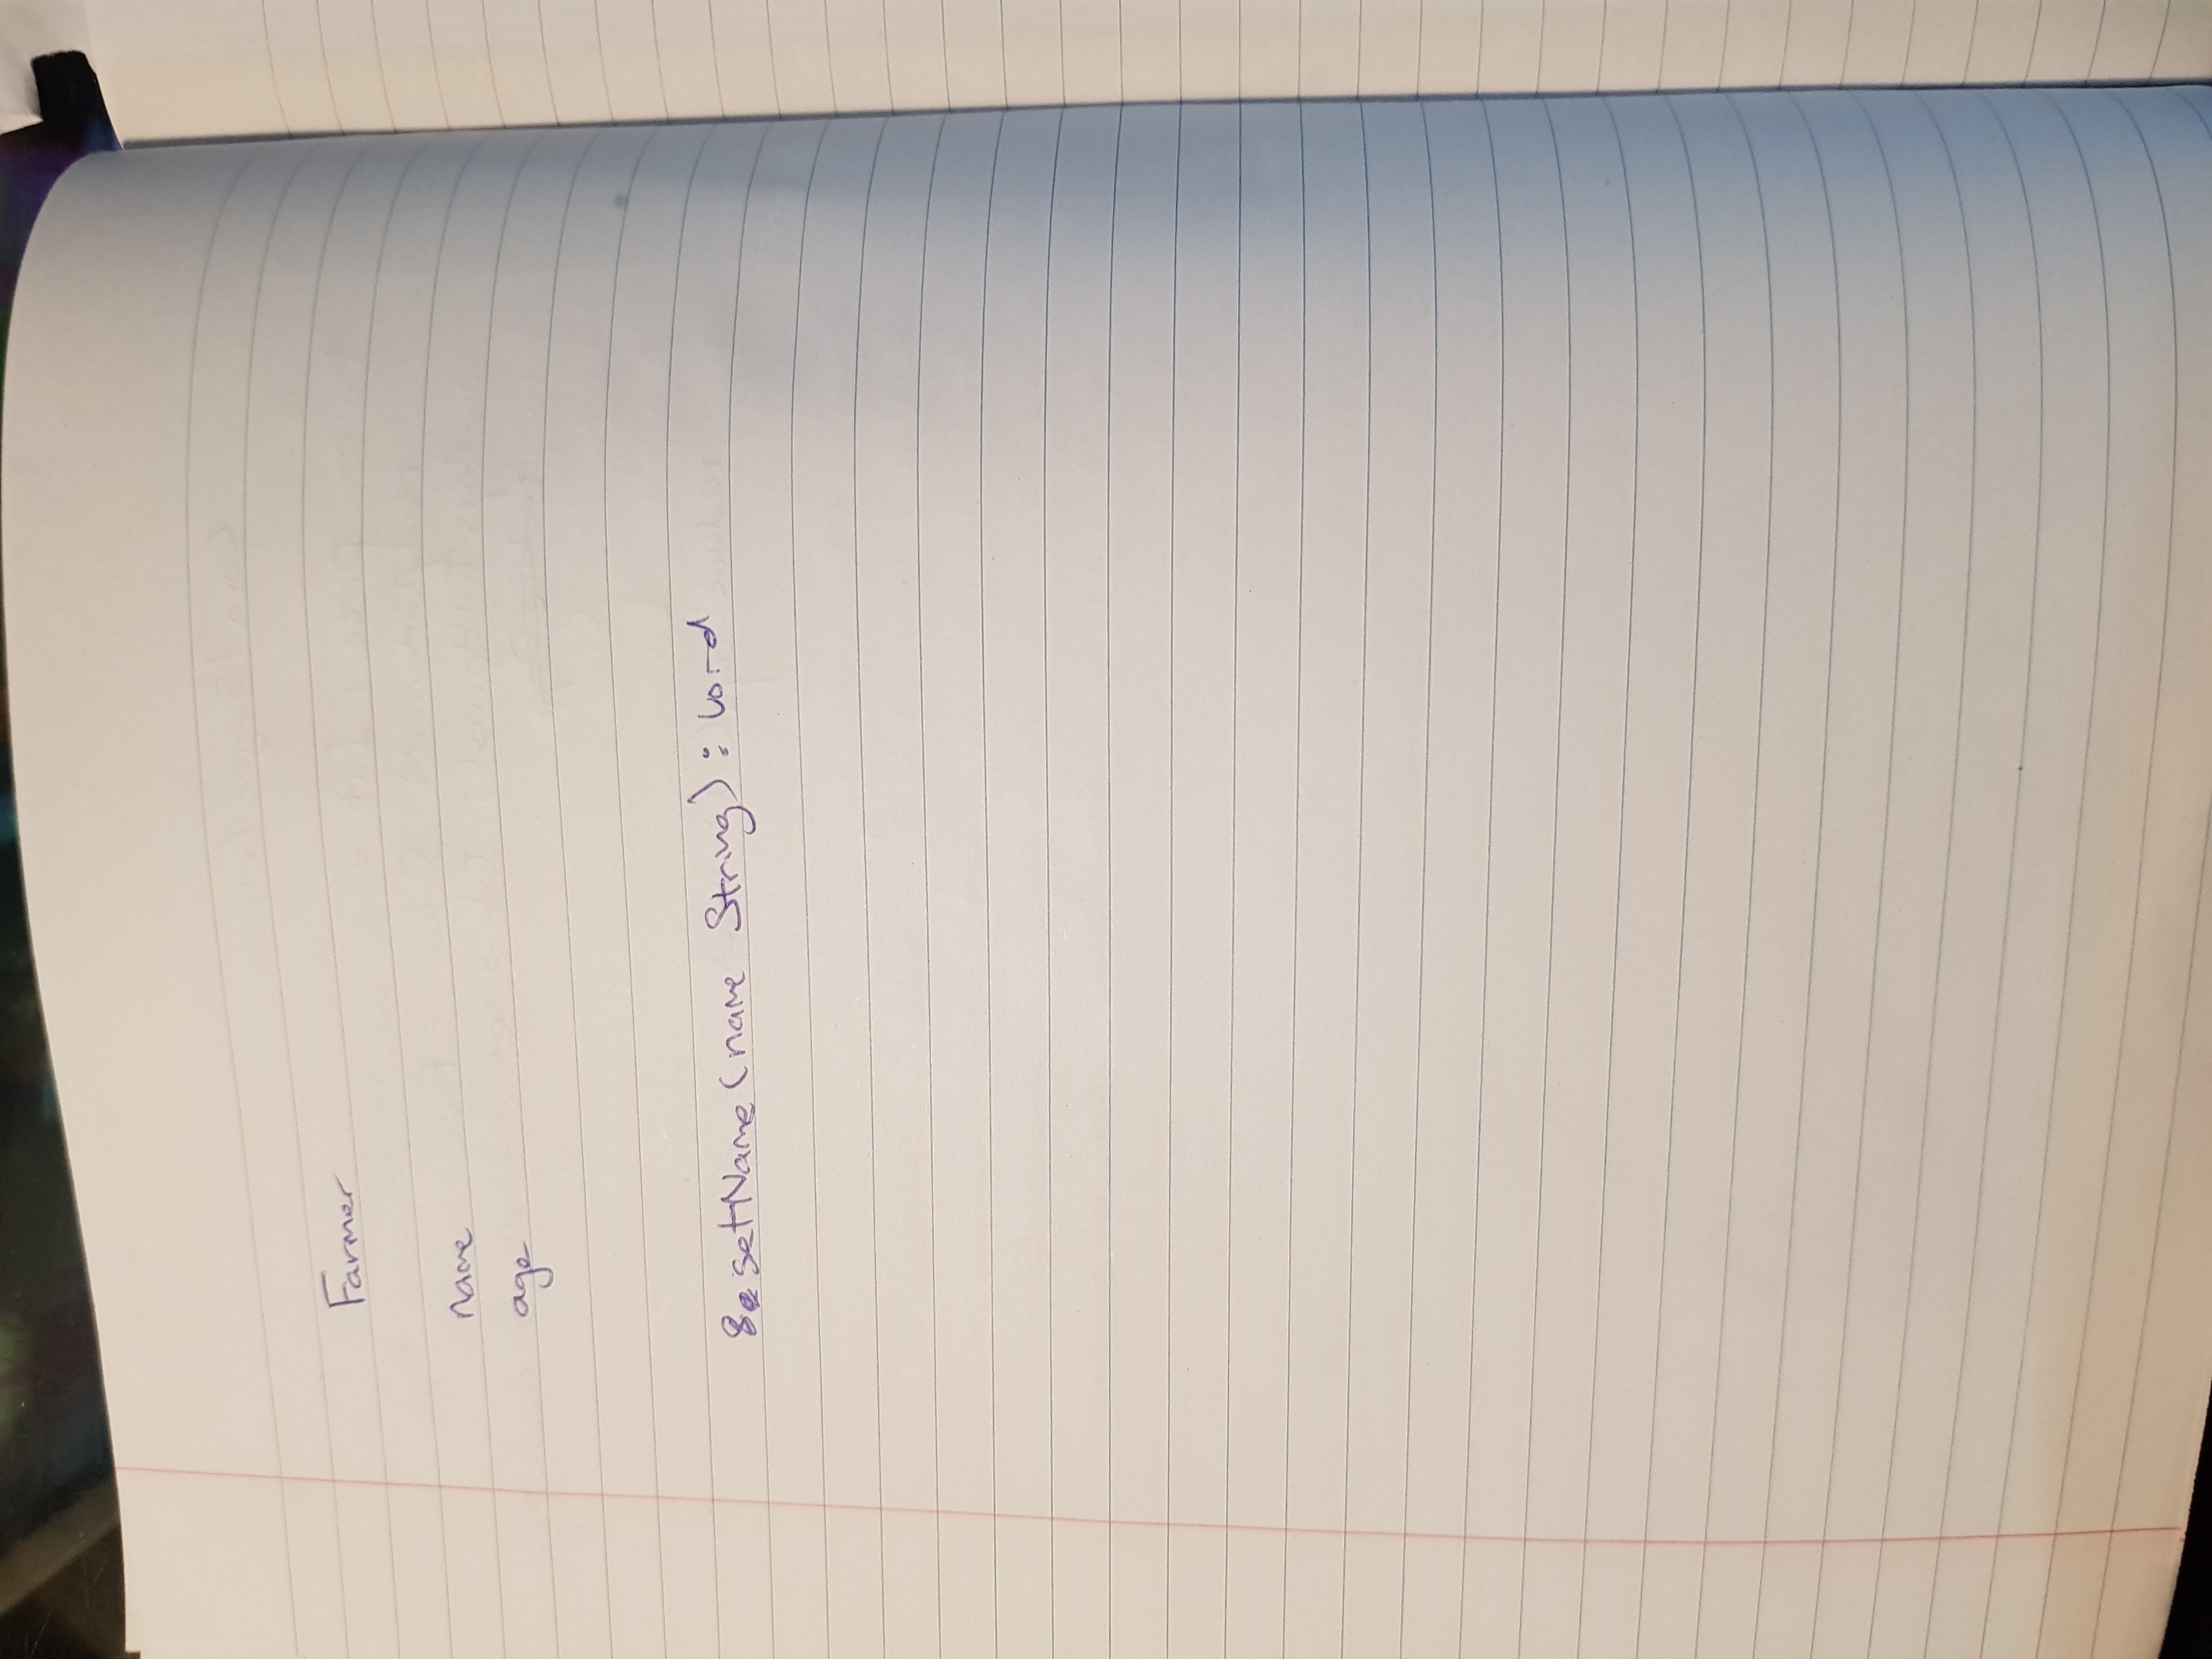 Farmer
name
age
setName (name String) : void